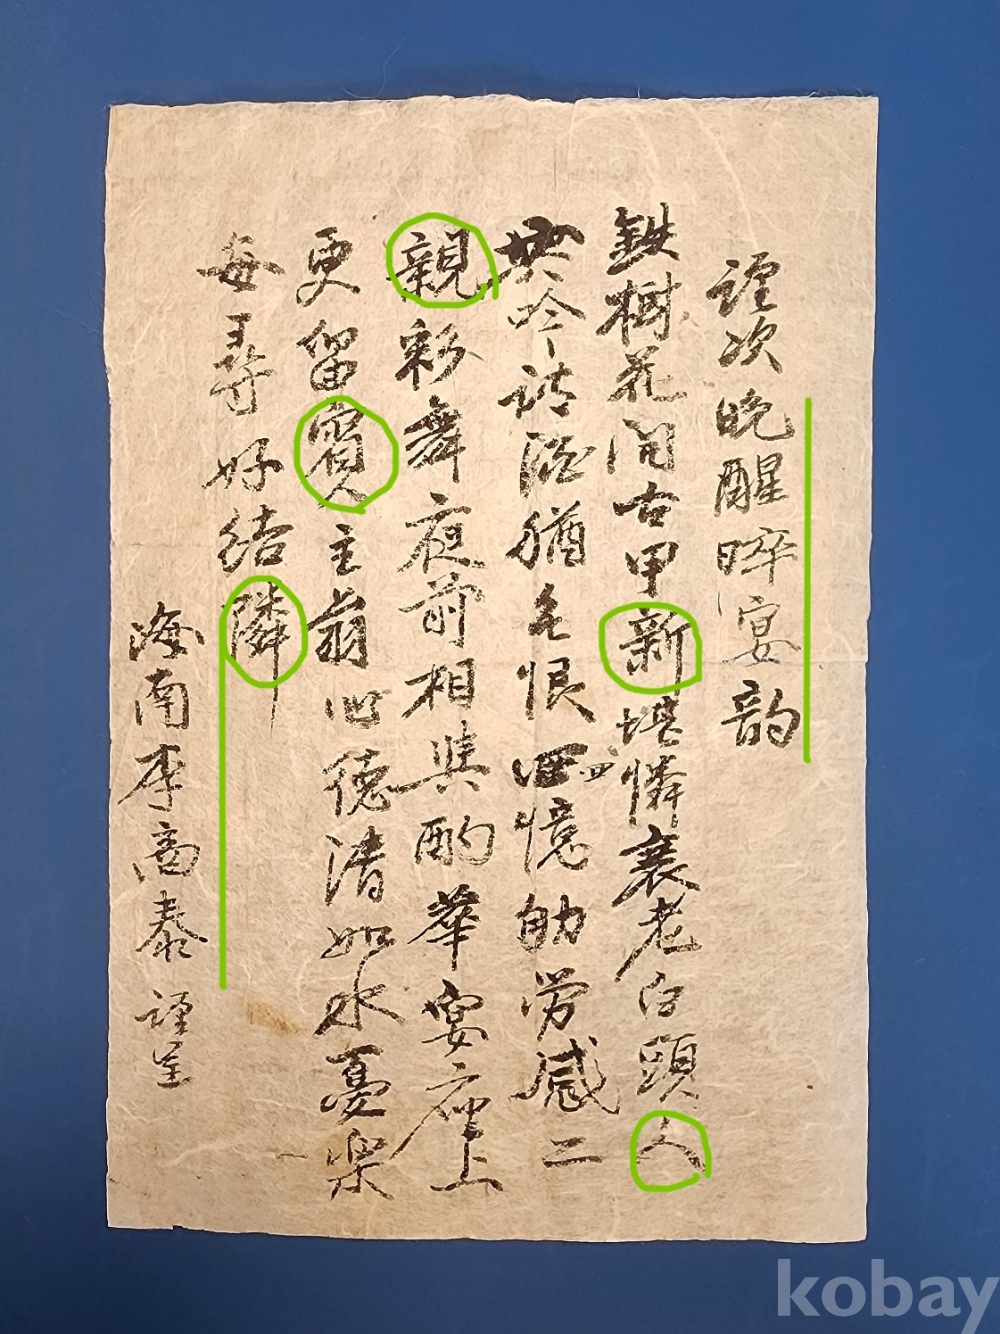 謹次晩醒晬宴韵
鉄樹花開古甲新堪憐衰老白頭人
共吟詩酒猶多恨回四憶劬劳感二
親彩舞庭前相與酌華宴席上
更留賓主翁心德清如水憂樂
每尋好結隣
海南李商泰謹呈
kobay